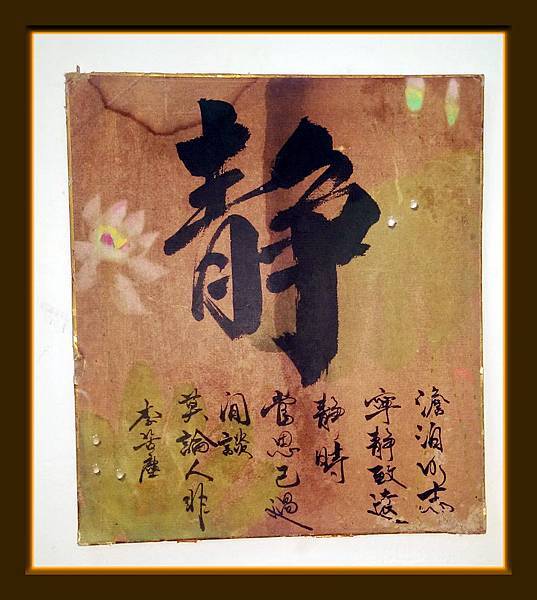 静
澹泊明志
寧靜致遠
靜時
常思己過
閒談
莫論人非